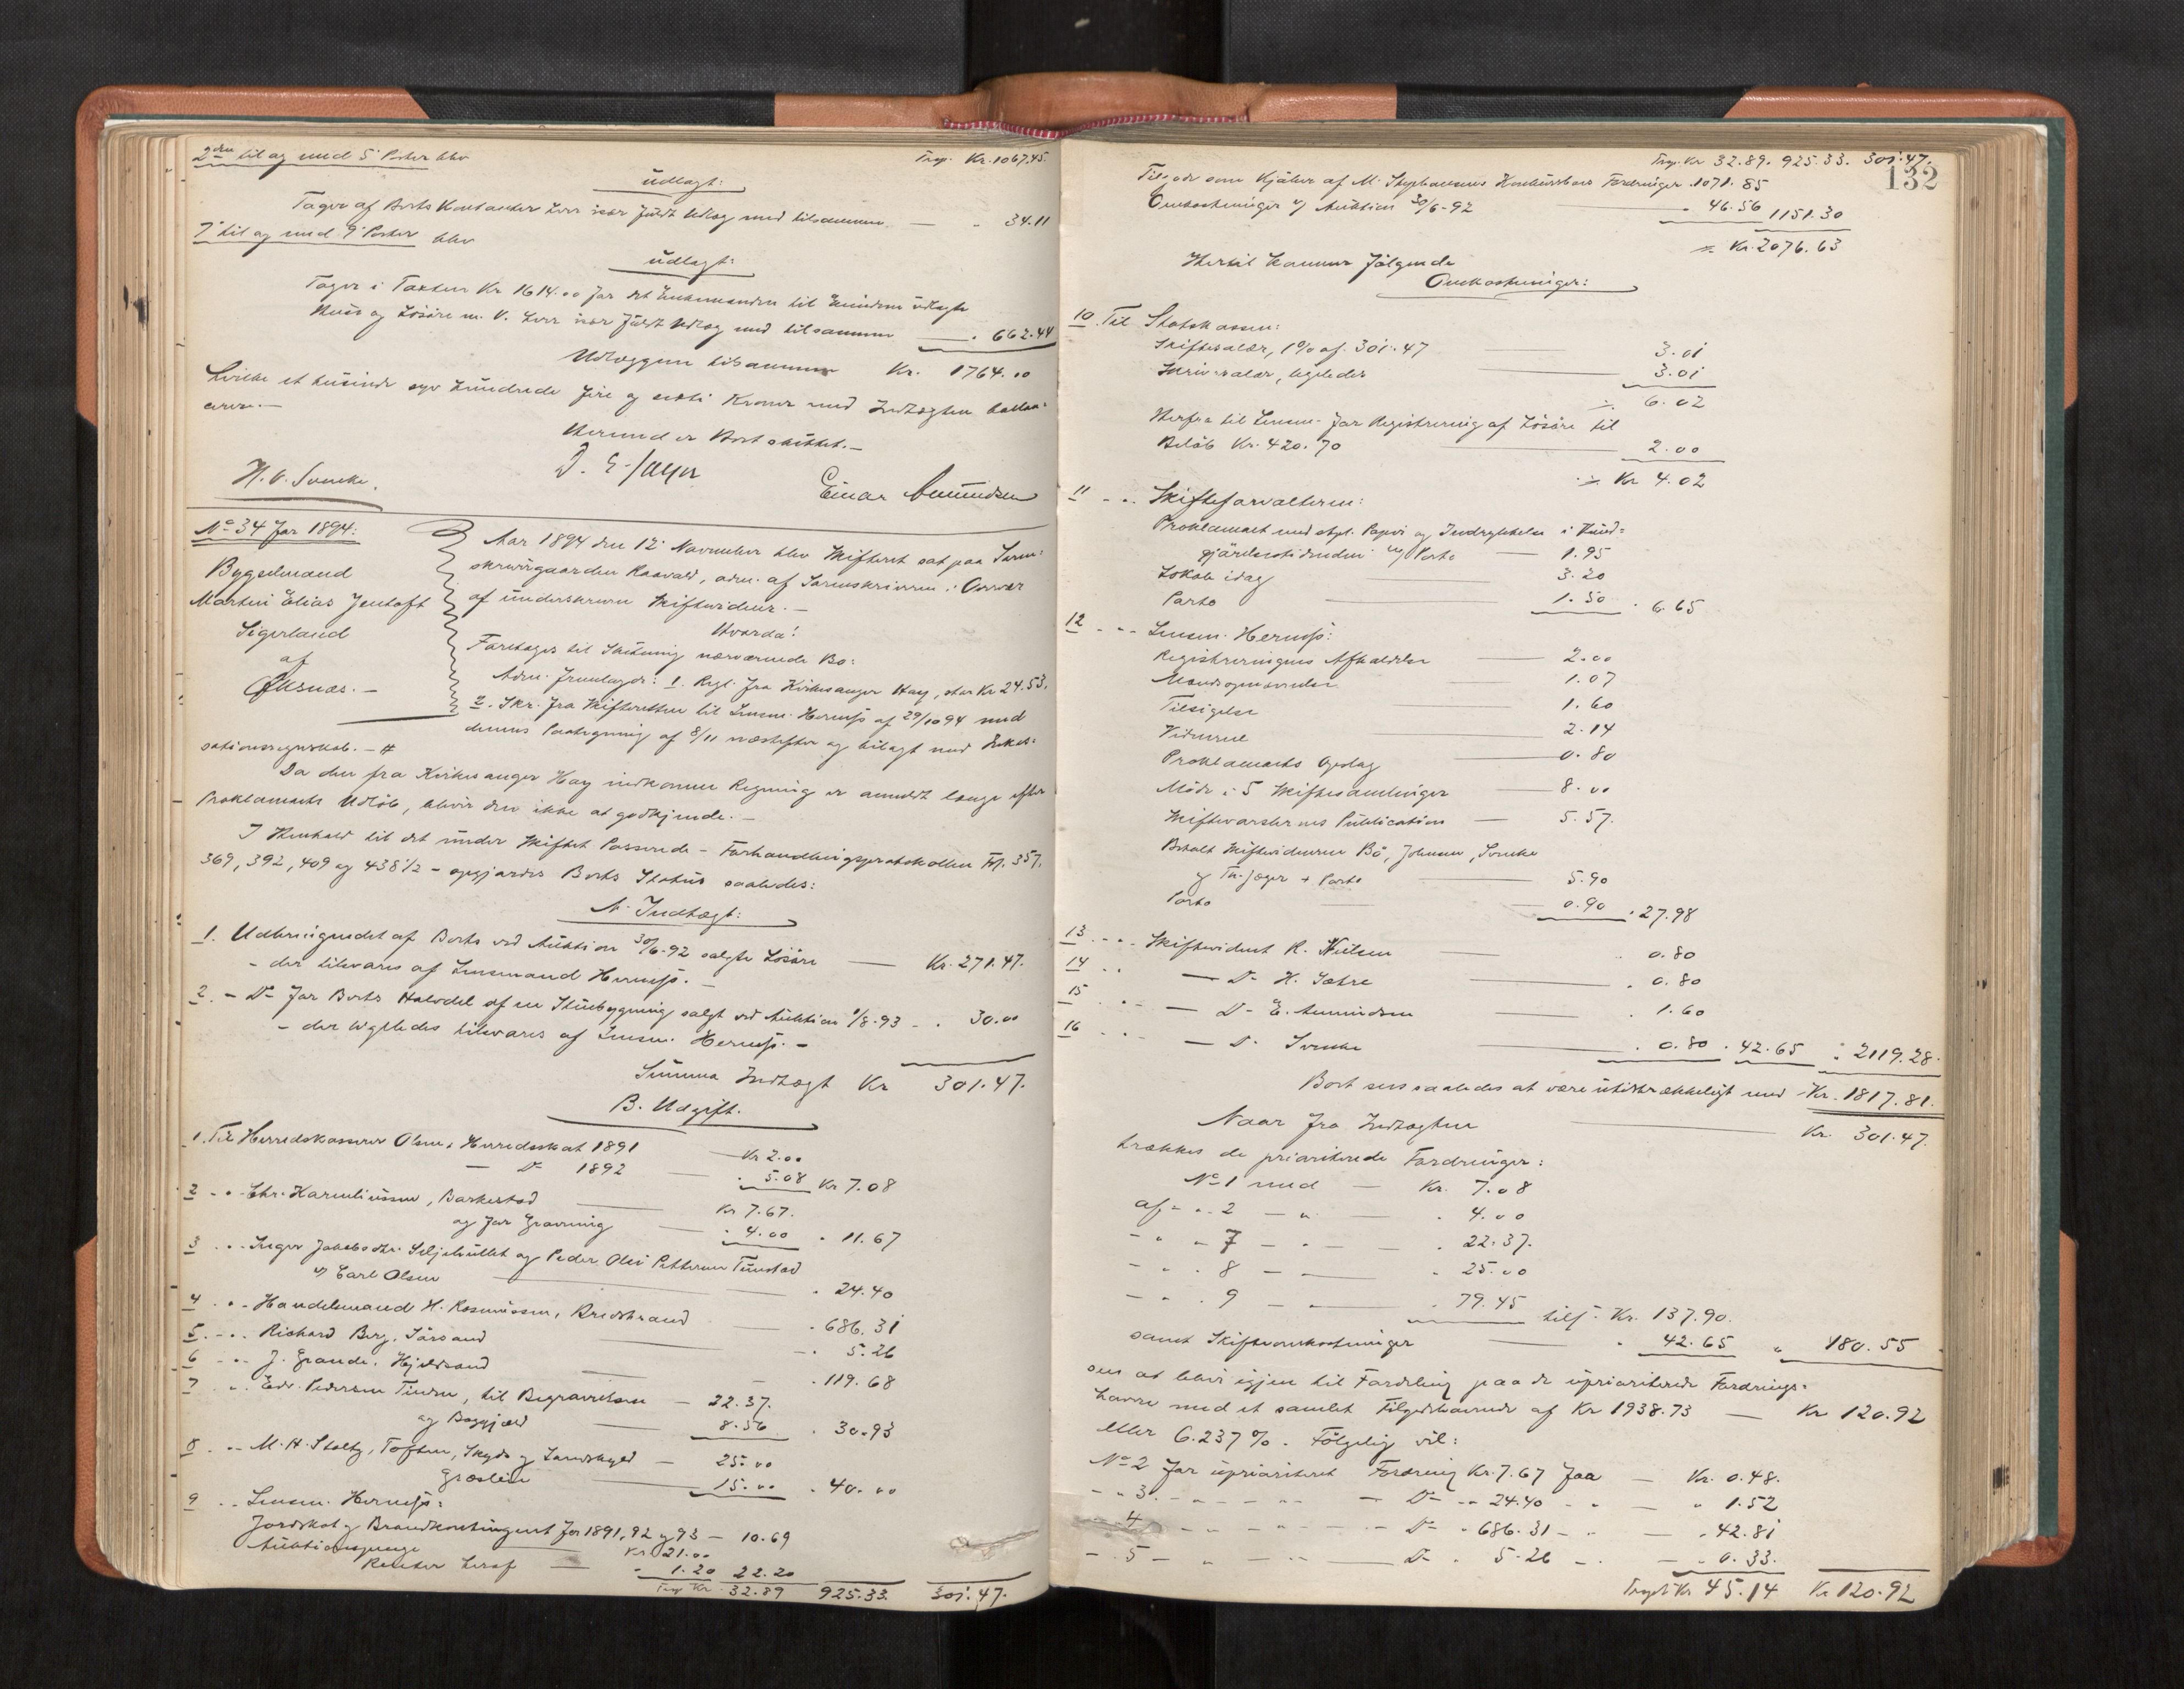 2den til og med 5' Poster blev Trsp. Kr. 1067.45.
Udlagt:
Tager af Boets Kontanter hver især fuldt Udlæg med tilsammen — " 34.11
7' til og med 9' Poster blev
Udlagt:
Tager i Taxten Kr 1614.00 for det Enkemanden til Eiendom udlagte
Huus og Løsøre m. V. hver især fuldt Udlæg med tilsammen — " 662.44
Udlæggene tilsammen Kr. 1764.00
hvilke et tusinde syv hundrede fire og sexti Kroner med Indtægten ballan-
cerer. —
Hermed er Boet sluttet. —
H. O. Svenke. Einar Amundsen
No 34 for 1894:
Bygselmand
Martin Elias Jentoft
Sigerland
af
Øksnæs. —
Aar 1894 den 12' November blev Skifteret sat paa Soren-
skrivergaarden Raavald, adm. af Sorenskriveren i Overvær
af underskrevne Skiftevidner. —
Hvorda:
Foretages til Slutning nærværende Bo:
Adm. fremlagde: 1. Regl. fra Kirkesanger Hay, stor Kr 24.53.
2. Skr. fra Skifteretten til Lensm. Hernes af 29/10 94 med
dennes Paategning af 8/11 næstefter og bilagt med Inkas-
sationsregnskab. — #
Da den fra Kirkesanger Hay indkomne Regning er anmeldt længe efter
Proklamaets Udløb, bliver den ikke at godkjende. —
I Henhold til det under Skiftet Passerede — Forhandlingsprotokollen Fol. 357,
369, 392, 409 og 438 1/2 — opgjordes Boets Status saaledes:
A. Indtægt:
1. Udbringendet af Boets ved Auktion 30/6-92 solgte Løsøre — Kr. 271.47.
– der tilsvares af Lensmand Hernes. —
2. – Do for Boets Halvdel af en Stuebygning solgt ved Auktion 1/8-93 – " 30.00
– der ligeledes tilsvares af Lensm. Hernes. –
Summa Indtægt Kr 301.47.
B. Udgift.
1. Til Herredskasserer Olsen, Herredsskat 1891 — Kr 2.00
— Do 1892 — " 5.08 Kr 7.08
2 . " Chr. Korneliussen, Barkestad — Kr 7.67.
og for Gravning — " 4.00 " 11.67
3 . " Inger Jakobsdtr. Seljehullet og Peder Olai Pettersen Tunstad
v/ Carl Olsen — " 24.40
4 . " Handelsmand H. Rasmussen, Bredstrand — " 686.31
5 . " Richard Berg, Sørsand — " 5.26
6 . " J. Grande, Hjeldsand — " 119.68
7 . " Edv. Pedersen Tinden, til Begravelsen — 22.37.
og Boggjæld — 8.56 " 30.93
8 . " M. H. Stoltz, Toften, Skyds og Landskyld — 25.00
Græsleie — 15.00 " 40.00
9 . " Lensm. Hernes:
Jordskat og Brandkontingent for 1891, 92 og 93 — 10.69
Auktionspenge — Kr 21.00
Renter heraf — " 1.20 22.20
Trsp Kr 32.89 925.33. 301.47.
132
Trsp. Kr 32.89. 925.33. 301.47.
Tilgode som Kjøber af M. Stephansens Konkursboes Fordringer 1071.85
Omkostninger v/ Auktion 30/6-92 — " 46.56 1151.30
= Kr. 2076.63
Hertil kommer følgende
Omkostninger:
10. Til Statskassen:
Skiftesalær, 1% af 301.47 — 3.01
Skriversalær, ligeledes — 3.01
÷ 6.02
Herfra til Lensm. for Registrering af Løsøre til
Beløb Kr. 420.70 — 2.00
÷ Kr 4.02
11 . " Skifteforvalteren:
Proklamaet med stpl. Papir og Indrykkelse i Kund-
gjørelsestidenden m/ Porto — 1.95
Lokale idag 3.20
Porto — 1.50 " 6.65
12 . " Lensm. Hernes:
Registreringens Afholdelse — 2.00
Mandsopnævnelse — 1.07
Tilsigelse 1.60
Vidnerne — 2.14
Proklamaets Opslag — 0.80
Møde i 5 Skiftesamlinger — 8.00
Skiftevarslernes Publication — 5.57.
Betalt Skiftevidnerne Bø, Johnsen, Svenke
og Th. Jæger + Porto — 5.90
Porto — 0.90 " 27.98
13 . " Skiftevidnet R. Nielsen — " 0.80
14 . " — Do H. Sætre — " 0.80
15 . " — Do E. Amundsen " 1.60
16 . " — Do Svenke — " 0.80 " 42.65 " 2119.28.
Boet sees saaledes at være utilstrækkeligt med Kr. 1817.81.
Naar fra Indtægten — Kr. 301.47.
trækkes de prioriterede Fordringer:
No 1 med — Kr. 7.08
af " " 2 — " — " 4.00
– " " 7 – " — " 22.37.
– " " 8 — — " 25.00
– " " 9 — — " 79.45 tils. Kr. 137.90.
samt Skifteomkostninger — " 42.65 " 180.55
sees at blive igjen til Fordeling paa de uprioriterede Fordrings-
havere med et samlet Tilgodehavende af Kr 1938.73 — Kr 120.92
eller 6.237%. Følgelig vil:
No 2 for uprioriteret Fordring Kr. 7.67 faa — Kr. 0.48.
– " 3. – " – " – Do " 24.40 – " — " 1.52
– " 4 – " – " – Do " 686.31 – " — " 42.81
– " 5 – " – " — Do " 5.26 – " — " 0.33.
Trspt Kr 45.14 Kr 120.92